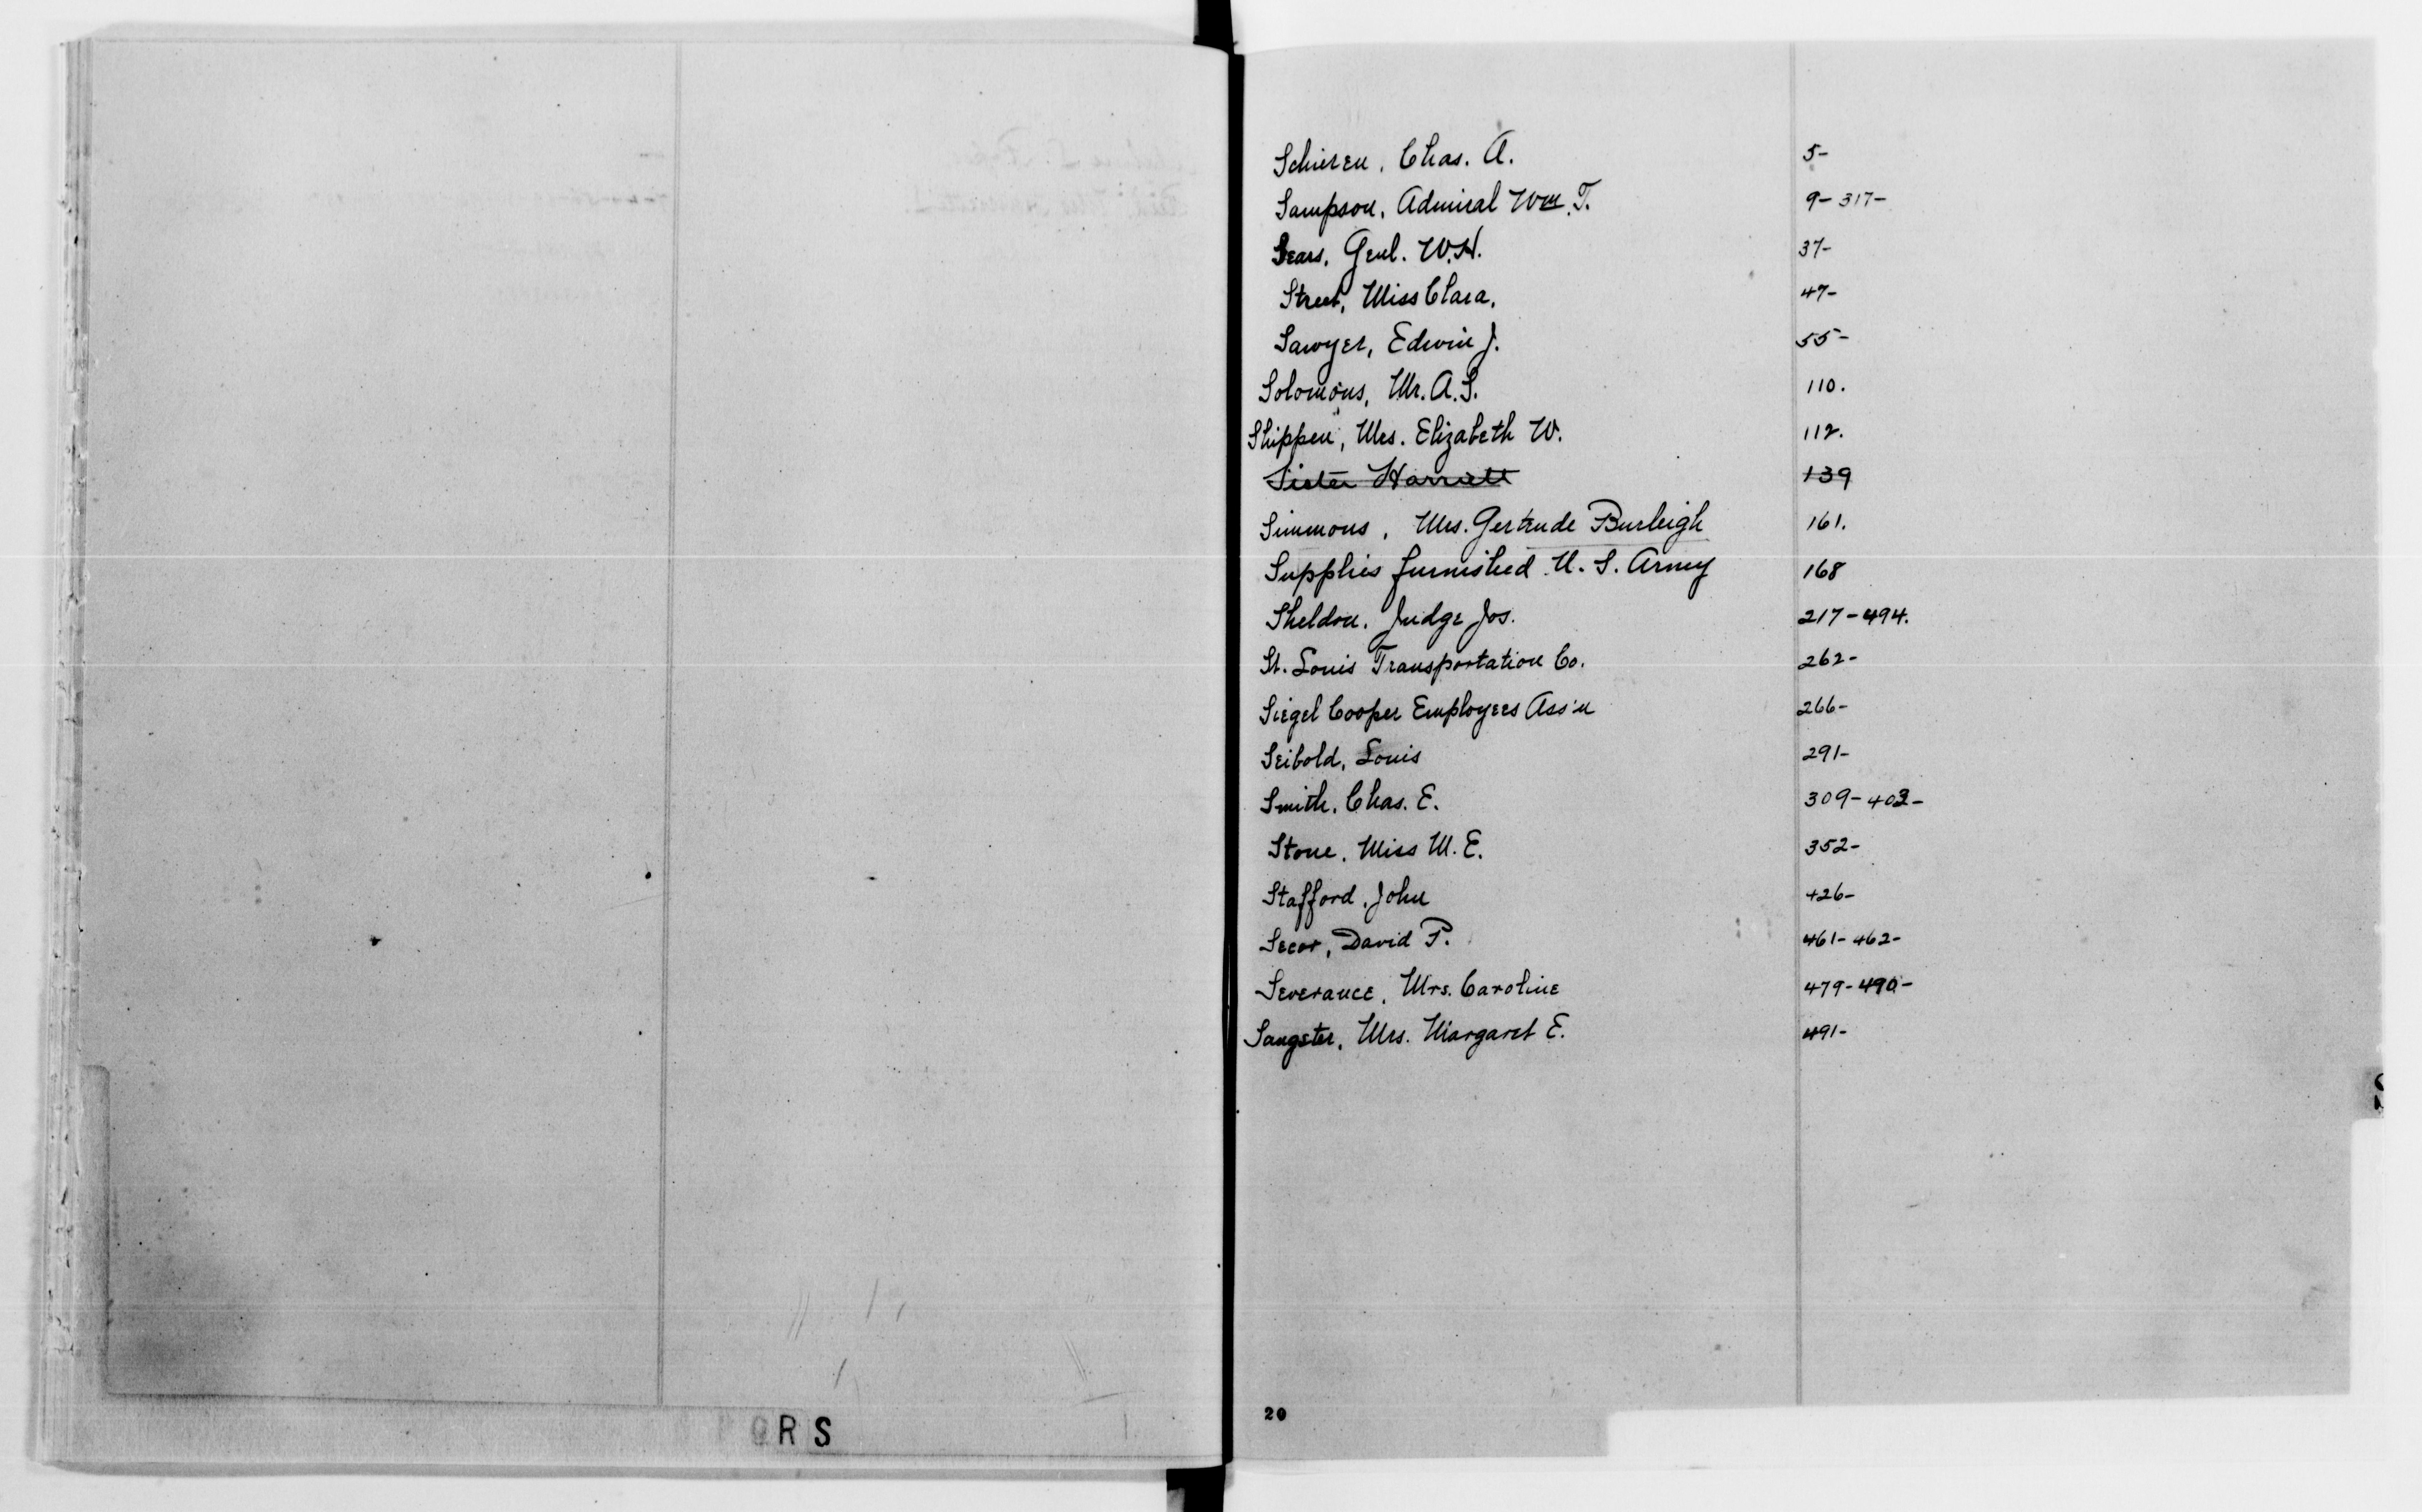 Schieren, Chas. A. 5-
Sampson, Admiral Wm. T. 9-317-
Sears, Genl. W.H. 37-
Street, Miss Clara, 47-
Sawyer, Edwin J. 55-
Solomons, Mr. A.S. 110.
Shippen, Mrs. Elizabeth W. 112.
Sister Harriett 139
Simmons, Mrs. Gertrude Burleigh 161.
Supplies furnished U.S. Army 168
Sheldon, Judge Jos. 217-494.
St. Louis Transportation Co. 262-
Siegel Cooper Employees Ass'n 266-
Seibold, Louis 291-
Smith, Chas. E. 309-403-
Stone, Miss M.E. 352-
Stafford, John 426-
Secor, David P. 461-462-
Severance, Mrs. Caroline 479-490-
Sangster, Mrs. Margaret E. 491-
20
QRS